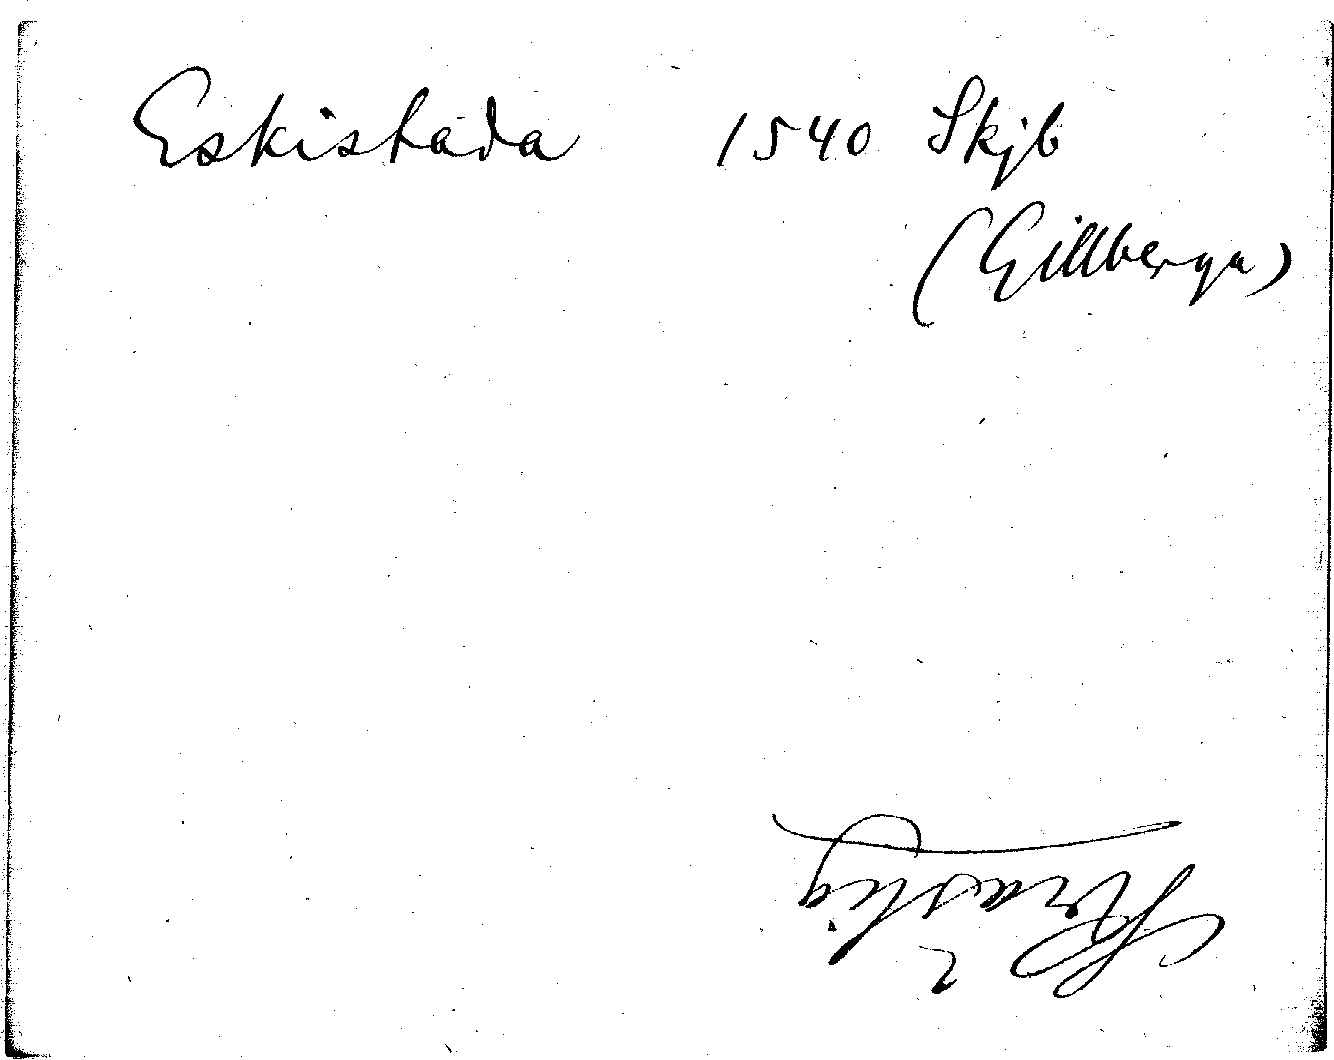 Eskistada 1540 Skjb
(Gillberga)